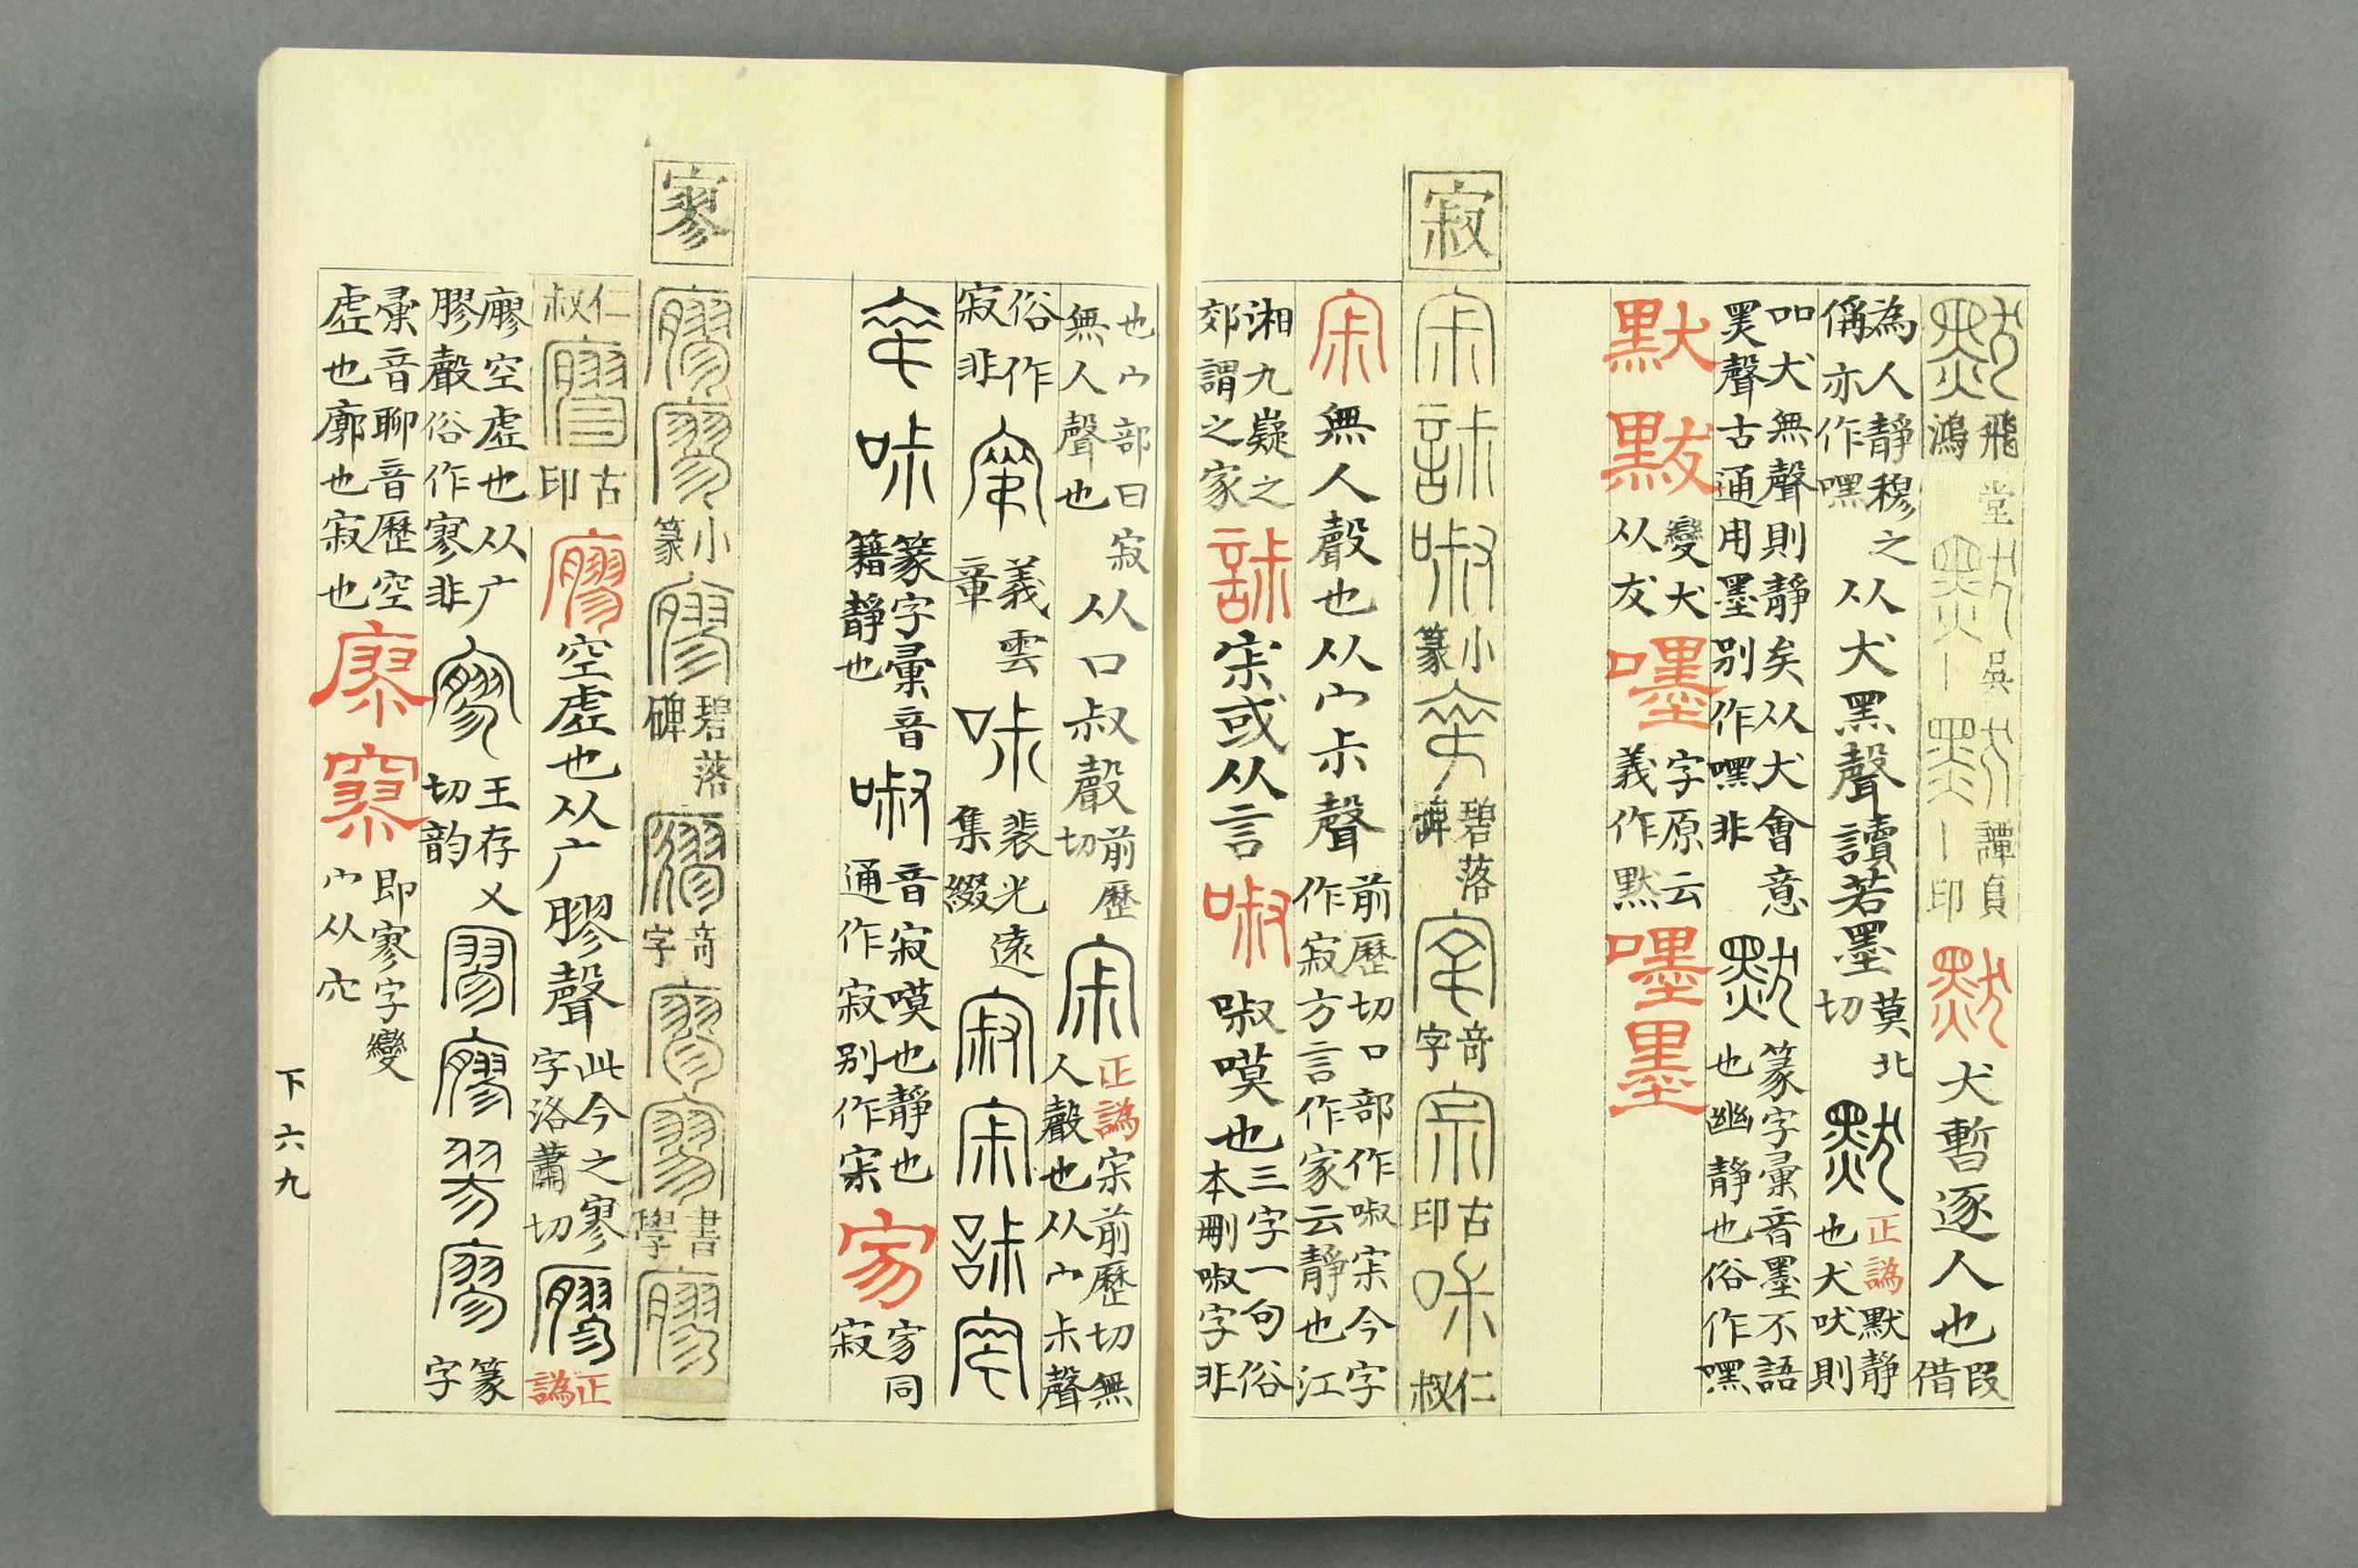 默 飛鴻堂 默 吳｜ 默 譚負｜印 默 犬暫逐人也 叚借
為人靜穆之偁亦作嘿 从犬黑聲讀若墨 莫北切 默 正譌 默靜也犬吠則
吅犬無聲則靜矣从犬會意黑聲古通用墨別作嘿非 默 篆字彙音墨不語也幽靜也俗作嘿
默 黓 變犬从犮 嚜 字原云義作黙 嚜 墨
寂
宋 䛑 㗼 小篆 碧落碑 奇字 宗 古印 仁叔
宋 無人聲也从宀尗聲 前歷切口部作㗼宋今字作寂方言作家云靜也江
湘九嶷之郊謂之家 䛑 宋或从言 㗼 㗼嘆也 三字一句俗本刪㗼字非
也宀部曰寂無人聲也 从口叔聲 前歷切 宋 正譌 宋前歷切無人聲也从宀尗聲
俗作寂非 義雲章 裴光遠集綴 寂 宋 䛑
篆字彙音籍靜也 㗼 音寂嘆也靜也通作寂別作宋 家同寂
寥
廫 小篆 廫 碧落碑 廫 奇字 廫 書學 廫
仁叔 古印 廫 空虛也从广膠聲 此今之寥字洛蕭切 廫 正譌
廫空虛也从广膠聲俗作寥非 王存乂切韵 篆字
彙音聊音歷空虛也廓也寂也 即寥字變宀从穴
下六九